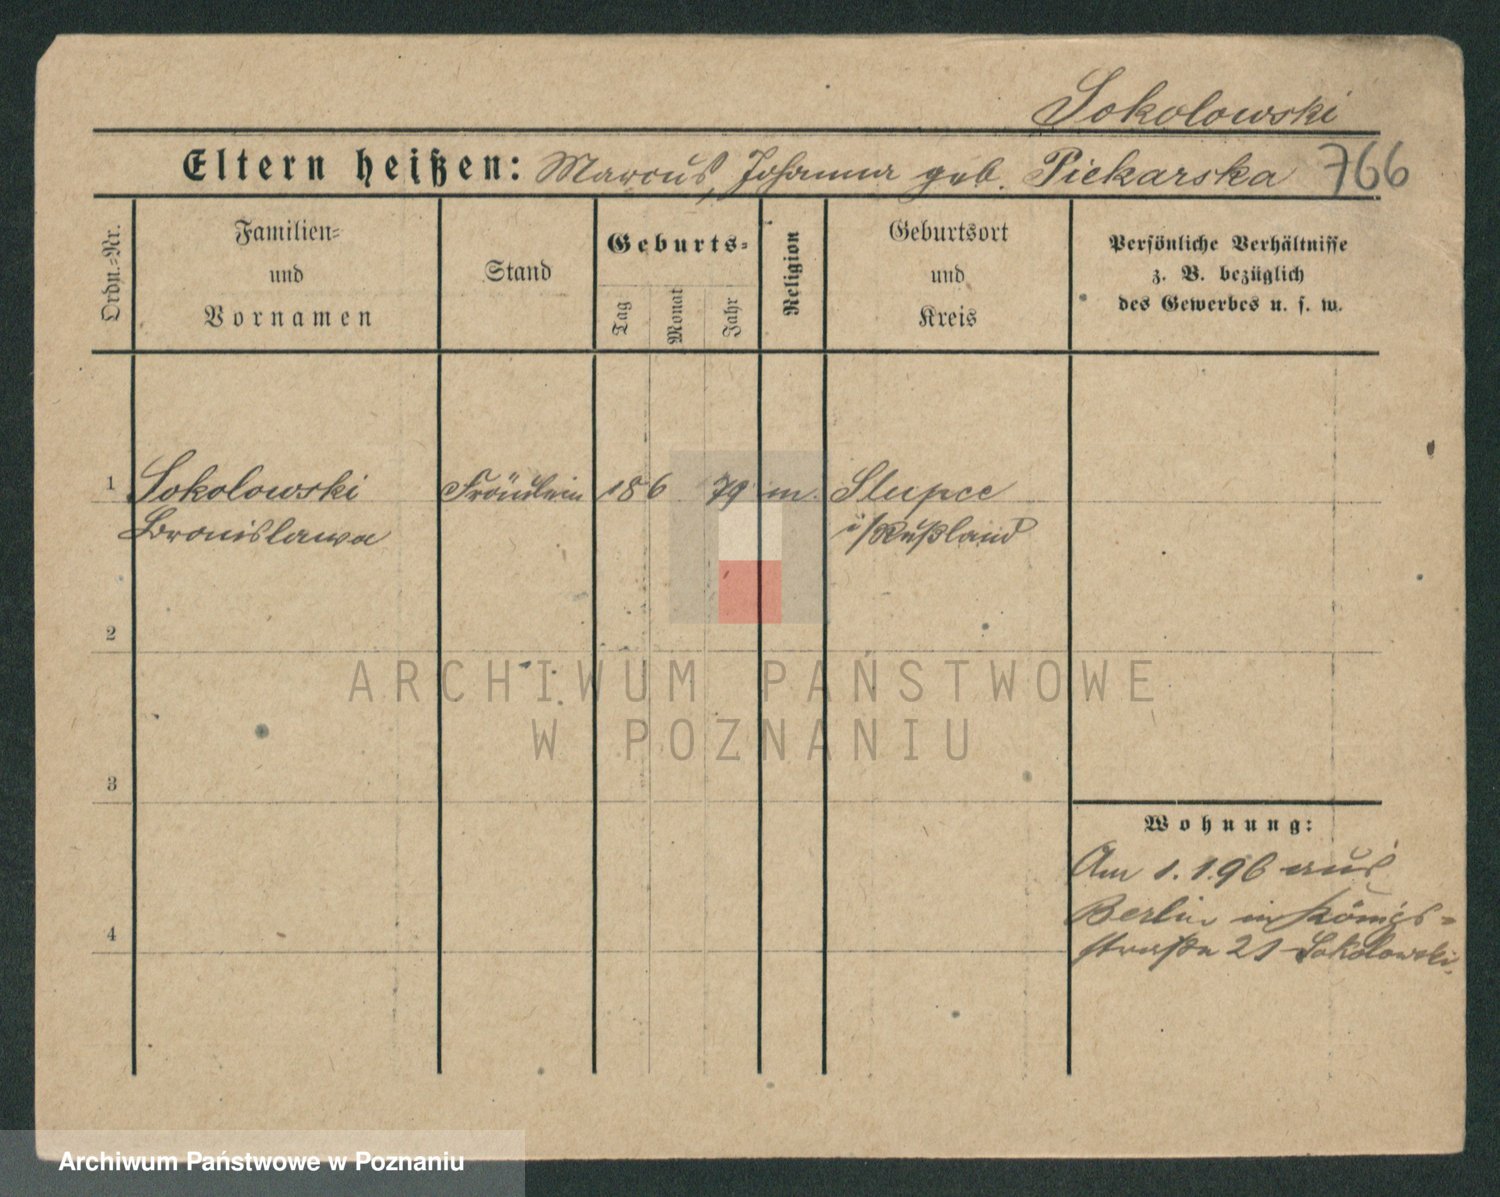 Sokolowski
Eltern heißen: Marcus, Johanna geb. Piekarska 766
Ordn.-Nr.
Familien-
und
Vornamen
Stand
Geburts-
Tag
Monat
Jahr
Religion
Geburtsort
und
Kreis
Persönliche Verhältnisse
z. B. bezüglich
des Gewerbes u. s. w.
1 Sokolowski Fräulein 18 6 79 m. Slupce
Bronislawa i/Rußland
2
ARCHIWUM PAŃSTWOWE
W POZNANIU
3
Wohnung:
Am 1.1.96 aus
Berlin in Königs-
4
straße 21 Sokolowski.
Archiwum Państwowe w Poznaniu